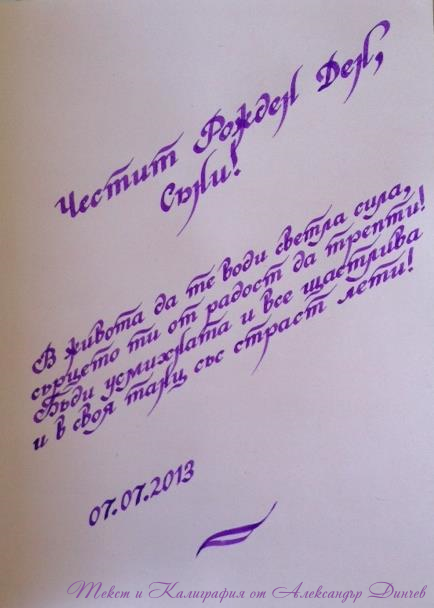 Честит Рожден Ден,
Съни!
В живота да те води светла сила,
сърцето ти от радост да трепти!
Бъди усмихната и все щастлива
и в своя танц със страст лети!
07.07.2013
Текст и Калиграфия от Александър Динчев